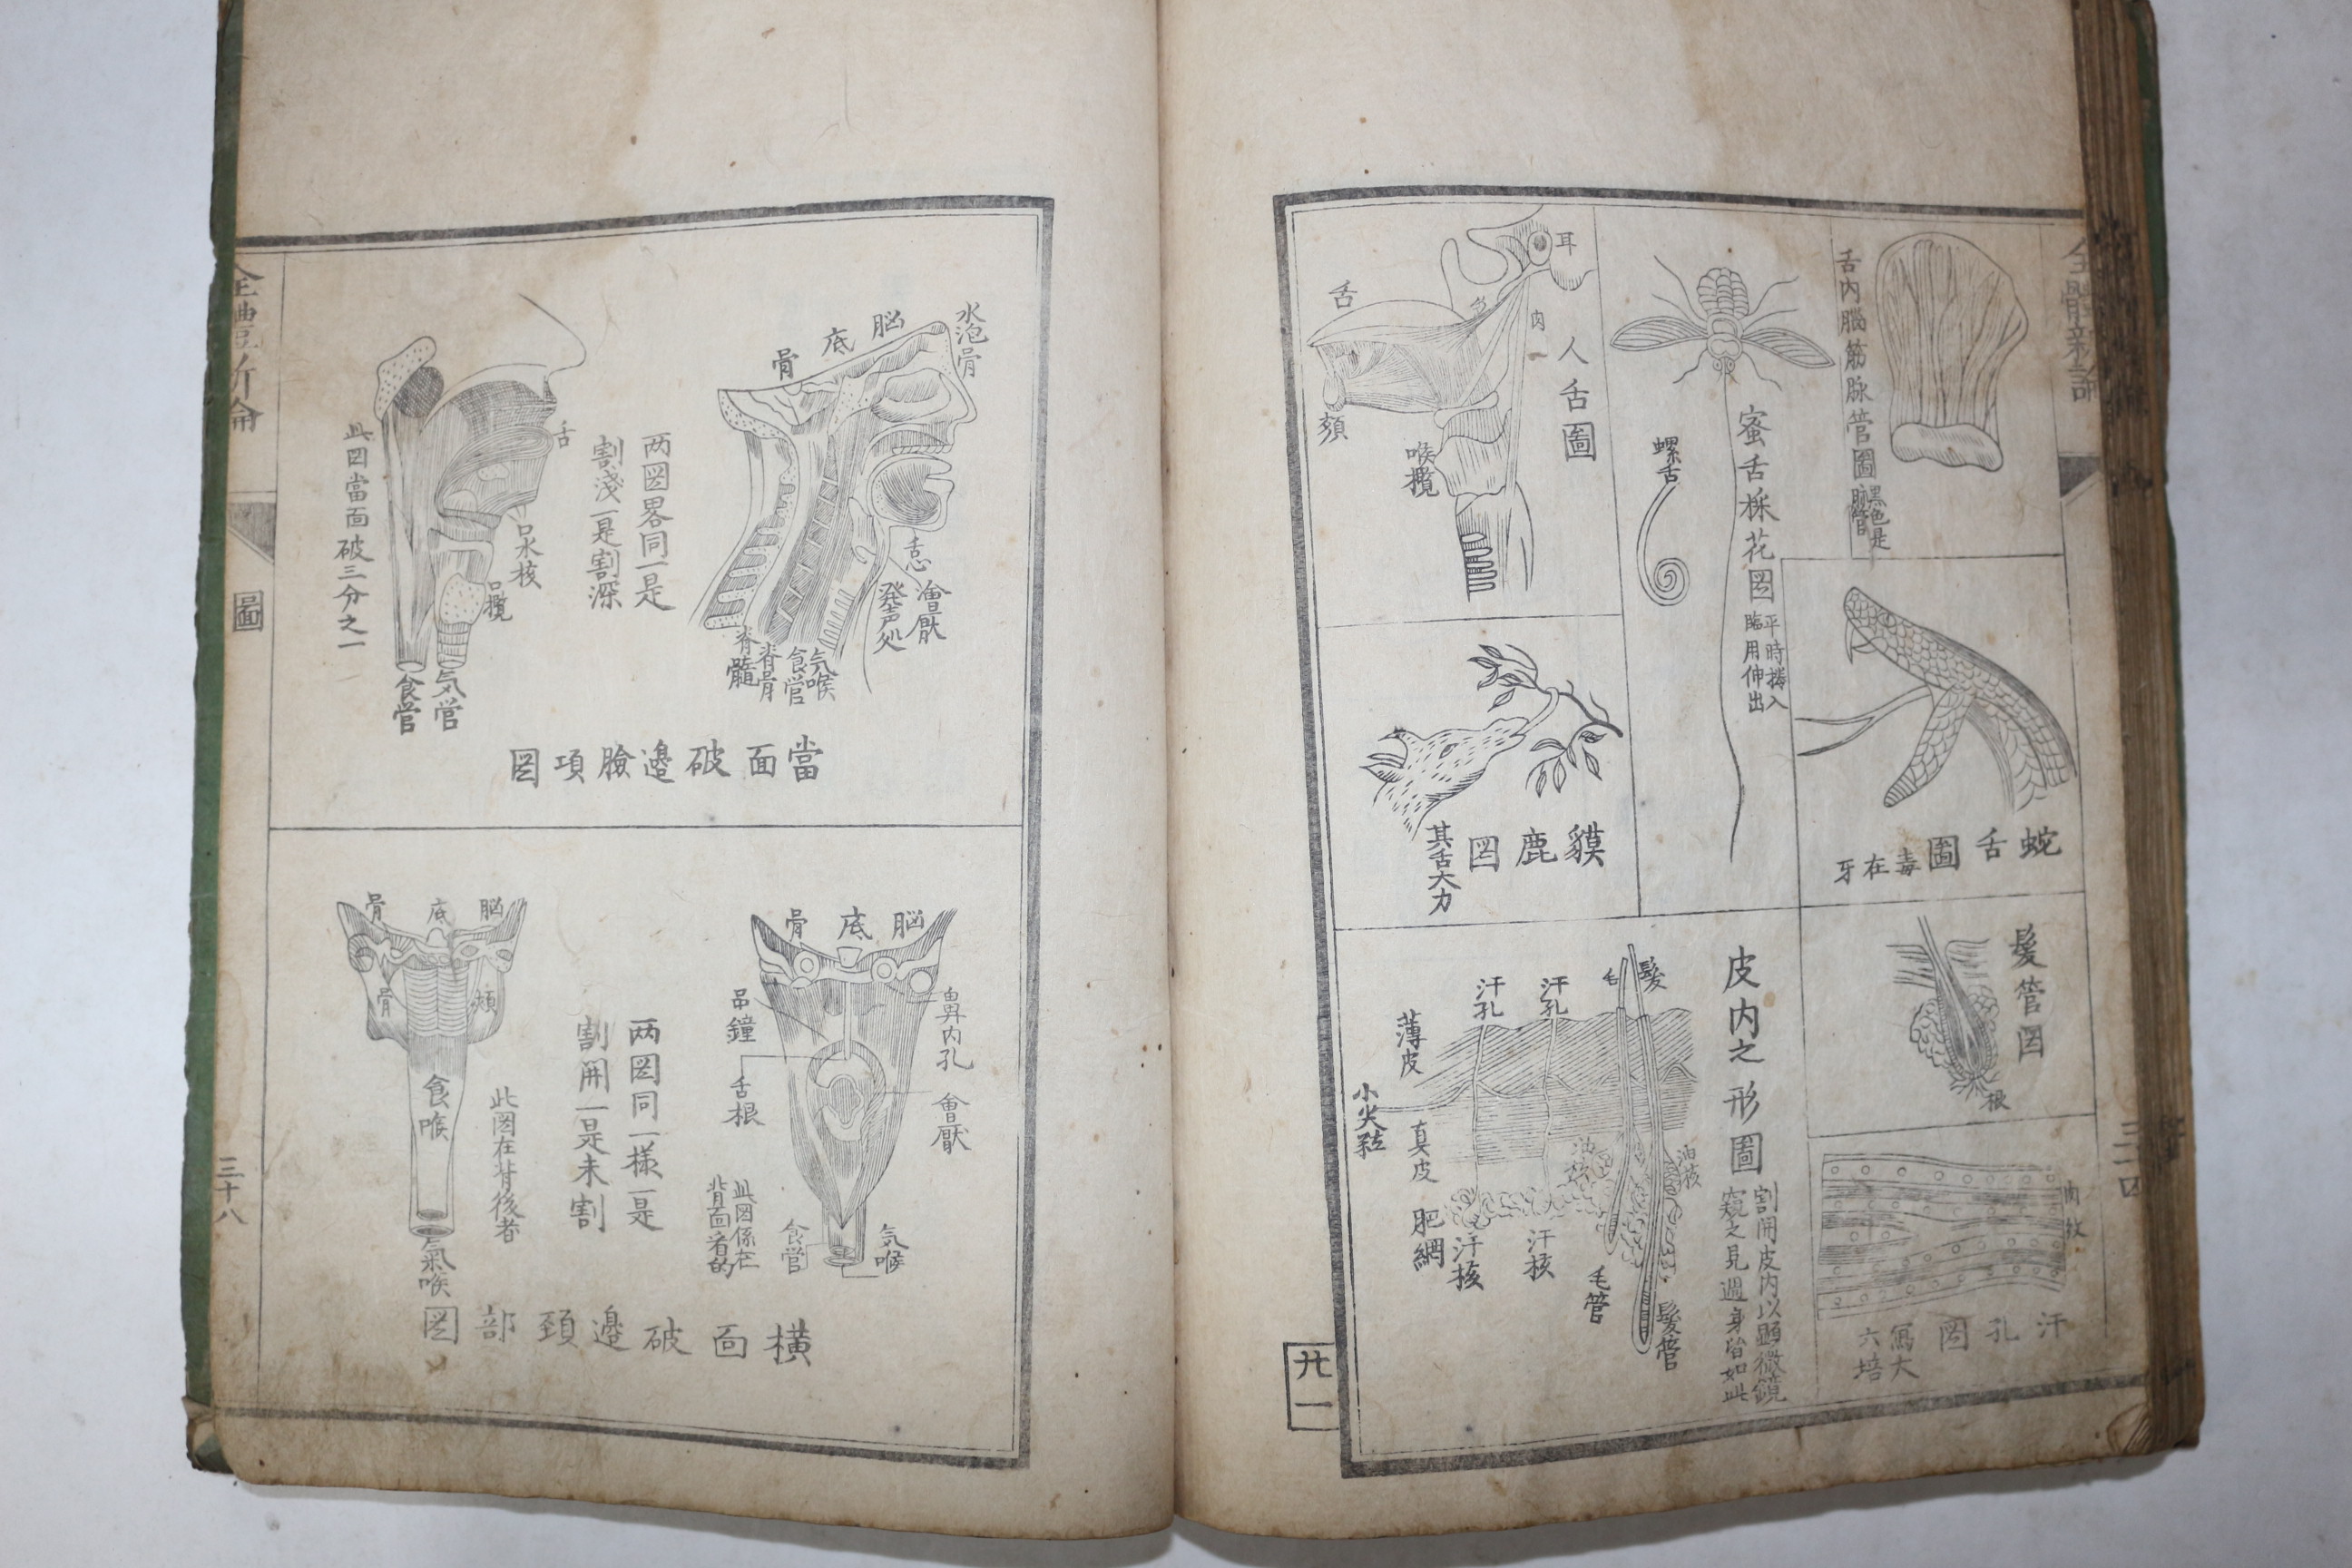 全體新論
舌內腦筋脉管圖
黑色是
脉管
蛇舌圖
毒在牙
髮管図
根
汗孔図
寫大
六培
蜜舌採花図
平時捲入
臨用伸出
螺舌
耳
舌
肉
人舌圖
頦
喉欖
貘鹿図
其舌大力
皮内之形圖
割開皮内以顕微鏡
窺之見週身皆如此
髮
毛
汗孔
汗孔
薄皮
真皮
肥網
油核
汗核
汗核
毛管
髮管
三十四
卄一
水泡骨
脳底骨
舌
會厭
発声处
気喉
食管
脊骨
脊髓
两図畧同一是
割淺一是割深
舌
口水核
気管
食管
此図當面破三分之一
當面破邉臉項図
脳底骨
鼻内孔
吊鐘
舌根
會厭
気喉
食管
此図係在
背面看的
两図同一様一是
割開一是未割
脳底骨
頰骨
食喉
氣喉
此図在背後者
橫面破邉頚部図
全體新論
圖
三十八